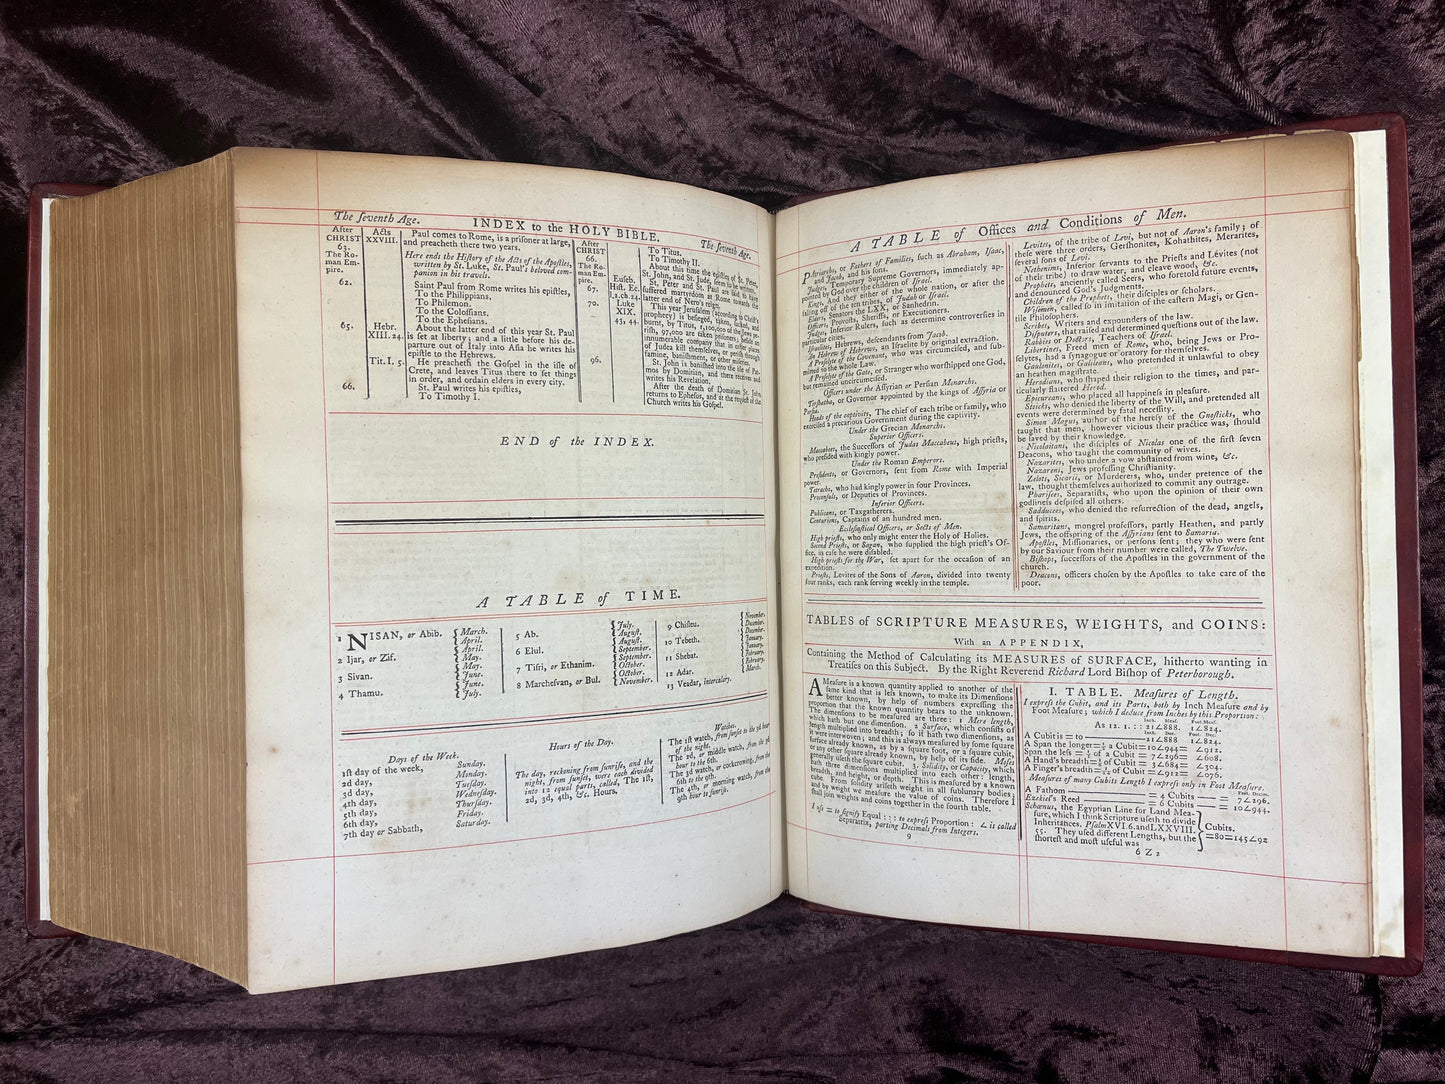 The ſeventh Age.
INDEX to the HOLY BIBLE.
The ſeventh Age.
After
CHRIST
63.
The Ro-
man Em-
pire.
62.
65.
66.
Acts
XXVIII.
Hebr.
XIII. 24.
Tit. I, 5.
Paul comes to Rome, is a priſoner at large,
and preacheth there two years.
Here ends the Hiſtory of the Acts of the Apoſtles,
written by St. Luke, St. Paul's beloved com-
panion in his travels.
Saint Paul from Rome writes his epiſtles,
To the Philippians.
To Philemon.
To the Coloſſians.
To the Epheſians.
About the latter end of this year St. Paul
is ſet at liberty; and a little before his de-
parture out of Italy into Aſia he writes his
epiſtle to the Hebrews.
He preacheth the Goſpel in the iſle of
Crete, and leaves Titus there to ſet things
in order, and ordain elders in every city.
St. Paul writes his epiſtles,
To Timothy I.
After
CHRIST
66.
The Ro-
man Em-
pire.
67.
70.
96.
Euſeb.
Hiſt. Ec.
l. 2. ch 24.
Luke
XIX.
43, 44.
To Titus.
To Timothy II.
About this time the epiſtles of St. Peter,
St. John, and St. Jude, ſeem to be written.
St. Peter and St. Paul are ſaid to have
ſuffered martyrdom at Rome towards the
latter end of Nero's reign.
This year Jeruſalem (according to Chriſt's
prophecy) is beſieged, taken, ſacked, and
burnt, by Titus, 1,100,000 of the Jews pe-
riſh, 97,000 are taken priſoners; beſides an
innumerable company that in other places
of Judea kill themſelves, or periſh through
famine, baniſhment, or other miſeries.
St. John is baniſhed into the iſle of Pat-
mos by Domitian, and there receives and
writes his Revelation.
After the death of Domitian St. John
returns to Epheſus, and at the requeſt of the
Church writes his Goſpel.
END of the INDEX.
A TABLE of TIME.
1 NISAN, or Abib. { March. April.
2 Ijar, or Zif. { April. May.
3 Sivan. { May. June.
4 Thamu. { June. July.
5 Ab. { July. Auguſt.
6 Elul. { Auguſt. September.
7 Tiſri, or Ethanim. { September. October.
8 Marcheſvan, or Bul. { October. November.
9 Chiſleu. { November. December.
10 Tebeth. { December. January.
11 Shebat. { January. February.
12 Adar. { February. March.
13 Veadar, intercalary.
Days of the Week.
1ſt day of the week, Sunday.
2d day, Monday.
3d day, Tueſday.
4th day, Wedneſday.
5th day, Thurſday.
6th day, Friday.
7th day or Sabbath, Saturday.
Hours of the Day.
The day, reckoning from ſunriſe, and the
night, from ſunſet, were each divided
into 12 equal parts, called, The 1ſt,
2d, 3d, 4th, &c. Hours.
Watches.
The 1ſt watch, from ſunſet to the 3d hour
of the night.
The 2d, or middle watch, from the 3d
hour to the 6th.
The 3d watch, or cockcrowing, from the
6th to the 9th.
The 4th, or morning watch, from the
9th hour to ſunriſe.
A TABLE of Offices and Conditions of Men.
Patriarchs, or Fathers of Families, ſuch as Abraham, Iſaac,
and Jacob, and his ſons.
Judges, Temporary Supreme Governors, immediately ap-
pointed by God over the children of Iſrael.
Kings, And they either of the whole nation, or after the
falling off of the ten tribes, of Judah or Iſrael.
Elders, Senators the LXX, or Sanhedrin.
Officers, Provoſts, Sheriffs, or Executioners.
Judges, Inferior Rulers, ſuch as determine controverſies in
particular cities.
Iſraelites, Hebrews, deſcendants from Jacob.
An Hebrew of Hebrews, an Iſraelite by original extraction.
A Proſelyte of the Covenant, who was circumciſed, and ſub-
mitted to the whole Law.
A Proſelyte of the Gate, or Stranger who worſhipped one God,
but remained uncircumciſed.
Officers under the Aſſyrian or Perſian Monarchs.
Tirſhatha, or Governor appointed by the kings of Aſſyria or
Perſia.
Heads of the captivity, The chief of each tribe or family, who
exerciſed a precarious Government during the captivity.
Under the Grecian Monarchs.
Superior Officers.
Maccabees, the Succeſſors of Judas Maccabeus, high prieſts,
who preſided with kingly power.
Under the Roman Emperors.
Preſidents, or Governors, ſent from Rome with Imperial
power.
Tetrachs, who had kingly power in four Provinces.
Proconſuls, or Deputies of Provinces.
Inferior Officers.
Publicans, or Taxgatherers.
Centurions, Captains of an hundred men.
Eccleſiaſtical Officers, or Sects of Men.
High prieſts, who only might enter the Holy of Holies.
Second Prieſts, or Sagan, who ſupplied the high prieſt's Of-
fice, in caſe he were diſabled.
High prieſts for the War, ſet apart for the occaſion of an
expedition.
Prieſts, Levites of the Sons of Aaron, divided into twenty
four ranks, each rank ſerving weekly in the temple.
Levites, of the tribe of Levi, but not of Aaron's family; of
theſe were three orders, Gerſhonites, Kohathites, Merarites,
ſeveral ſons of Levi.
Nethenims, Inferior ſervants to the Prieſts and Levites (not
of their tribe) to draw water, and cleave wood, &c.
Prophets, anciently called Seers, who foretold future events,
and denounced God's Judgments.
Children of the Prophets, their diſciples or ſcholars.
Wiſemen, called ſo in imitation of the eaſtern Magi, or Gen-
tile Philoſophers.
Scribes, Writers and expounders of the law.
Diſputers, that raiſed and determined queſtions out of the law.
Rabbies or Doctors, Teachers of Iſrael.
Libertines, Freed men of Rome, who, being Jews or Pro-
ſelytes, had a ſynagogue or oratory for themſelves.
Gaulonites, or Galileans, who pretended it unlawful to obey
an heathen magiſtrate.
Herodians, who ſhaped their religion to the times, and par-
ticularly flattered Herod.
Epicureans, who placed all happineſs in pleaſure.
Stoicks, who denied the liberty of the Will, and pretended all
events were determined by fatal neceſſity.
Simon Magus, author of the hereſy of the Gnoſticks, who
taught that men, however vicious their practice was, ſhould
be ſaved by their knowledge.
Nicolaitans, the diſciples of Nicolas one of the firſt ſeven
Deacons, who taught the community of wives.
Nazarites, who under a vow abſtained from wine, &c.
Nazarens, Jews profeſſing Chriſtianity.
Zelots, Sicarii, or Murderers, who, under pretence of the
law, thought themſelves authorized to commit any outrage.
Phariſees, Separatiſts, who upon the opinion of their own
godlineſs deſpiſed all others.
Sadducees, who denied the reſurrection of the dead, angels,
and ſpirits.
Samaritans, mongrel profeſſors, partly Heathen, and partly
Jews, the offspring of the Aſſyrians ſent to Samaria.
Apoſtles, Miſſionaries, or perſons ſent; they who were ſent
by our Saviour from their number were called, The Twelve.
Biſhops, ſucceſſors of the Apoſtles in the government of the
church.
Deacons, officers choſen by the Apoſtles to take care of the
poor.
TABLES of SCRIPTURE MEASURES, WEIGHTS, and COINS:
With an APPENDIX,
Containing the Method of Calculating its MEASURES of SURFACE, hitherto wanting in
Treatiſes on this Subject. By the Right Reverend Richard Lord Biſhop of Peterborough.
A Meaſure is a known quantity applied to another of the
ſame kind that is leſs known, to make its Dimenſions
better known, by help of numbers expreſſing the
proportion that the known quantity bears to the unknown.
The dimenſions to be meaſured are three: 1 Mere length,
which hath but one dimenſion. 2 Surface, which conſiſts of
length multiplied into breadth; ſo it hath two dimenſions, as
it were interwoven; and this is always meaſured by ſome ſquare
ſurface already known, as by a ſquare foot, or a ſquare cubit,
or any other ſquare already known, by help of its ſide. Moſes
generally uſeth the ſquare cubit. 3. Solidity, or Capacity, which
hath three dimenſions multiplied into each other: length,
breadth, and height, or depth. This is meaſured by a known
cube. From ſolidity ariſeth weight in all ſublunary bodies;
and by weight we meaſure the value of coins. Therefore I
ſhall join weights and coins together in the fourth table.
I uſe = to ſignify Equal : : : to expreſs Proportion : ∠ is called
Separatrix, parting Decimals from Integers.
9
I. TABLE. Meaſures of Length.
I expreſs the Cubit, and its Parts, both by Inch Meaſure and by
Foot Meaſure; which I deduce from Inches by this Proportion:
Inch. Meaſ. Foot Meaſ.
As 12. 1. : : 21∠888. 1∠824.
Inch. Dec. Foot. Dec.
A Cubit is = to 21∠888 1∠824.
A Span the longer=½ a Cubit=10∠944= ∠912.
Span the leſs =⅓ of a Cubit = 7∠296= ∠608.
A Hand's breadth=⅙ of Cubit = 3∠684= ∠304.
A Finger's breadth=1/24 of Cubit= ∠912= ∠076.
Meaſures of many Cubits Length I expreſs only in Foot Meaſure.
Foot. Decim.
A Fathom = 4 Cubits = 7∠296.
Ezekiel's Reed = 6 Cubits = 10∠944.
Schœnus, the Egyptian Line for Land Mea-
ſure, which I think Scripture uſeth to divide
Inheritances. Pſalm XVI. 6. and LXXVIII.
55. They uſed different Lengths, but the
ſhorteſt and moſt uſeful was
} Cubits.
=80=145∠92
6 Z 2